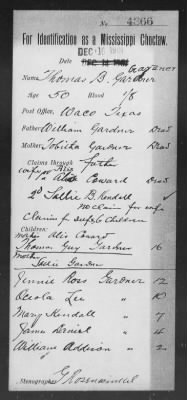 No. 4366
For Identification as a Mississippi Choctaw.
DEC 16 1901
Name Thomas B. Gardner
Age 50 Blood 1/8
Post Office, Waco Texas
Father William Gardner Dead
Mother Gardner Dead
Claims through Father
wife Coward Dead
2d Sallie B. Kendall
no claim for wife
Claims for self & 6 Children
Children:
mother Coward
Thomas Guy Gardner 16
mother
Sallie Gardner
Jennie Ross Gardner 12
Lee " 10
Mary Kendall " 7
James Daniel " 4
William Addison " 2
Stenographer G Rosenwinkel